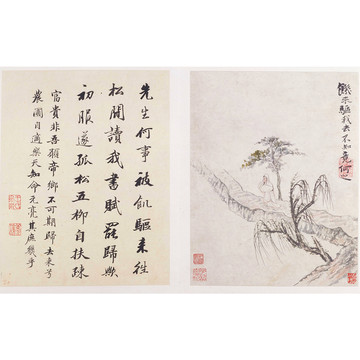 飢来驅我去不知竟何之
先生何事被飢驅来往
松關讀我書賦罷歸歟
初服遂孤松五柳自扶疎
富貴非吾願帝鄉不可期歸去来兮
農圃自適樂天知命元亮其庶幾乎